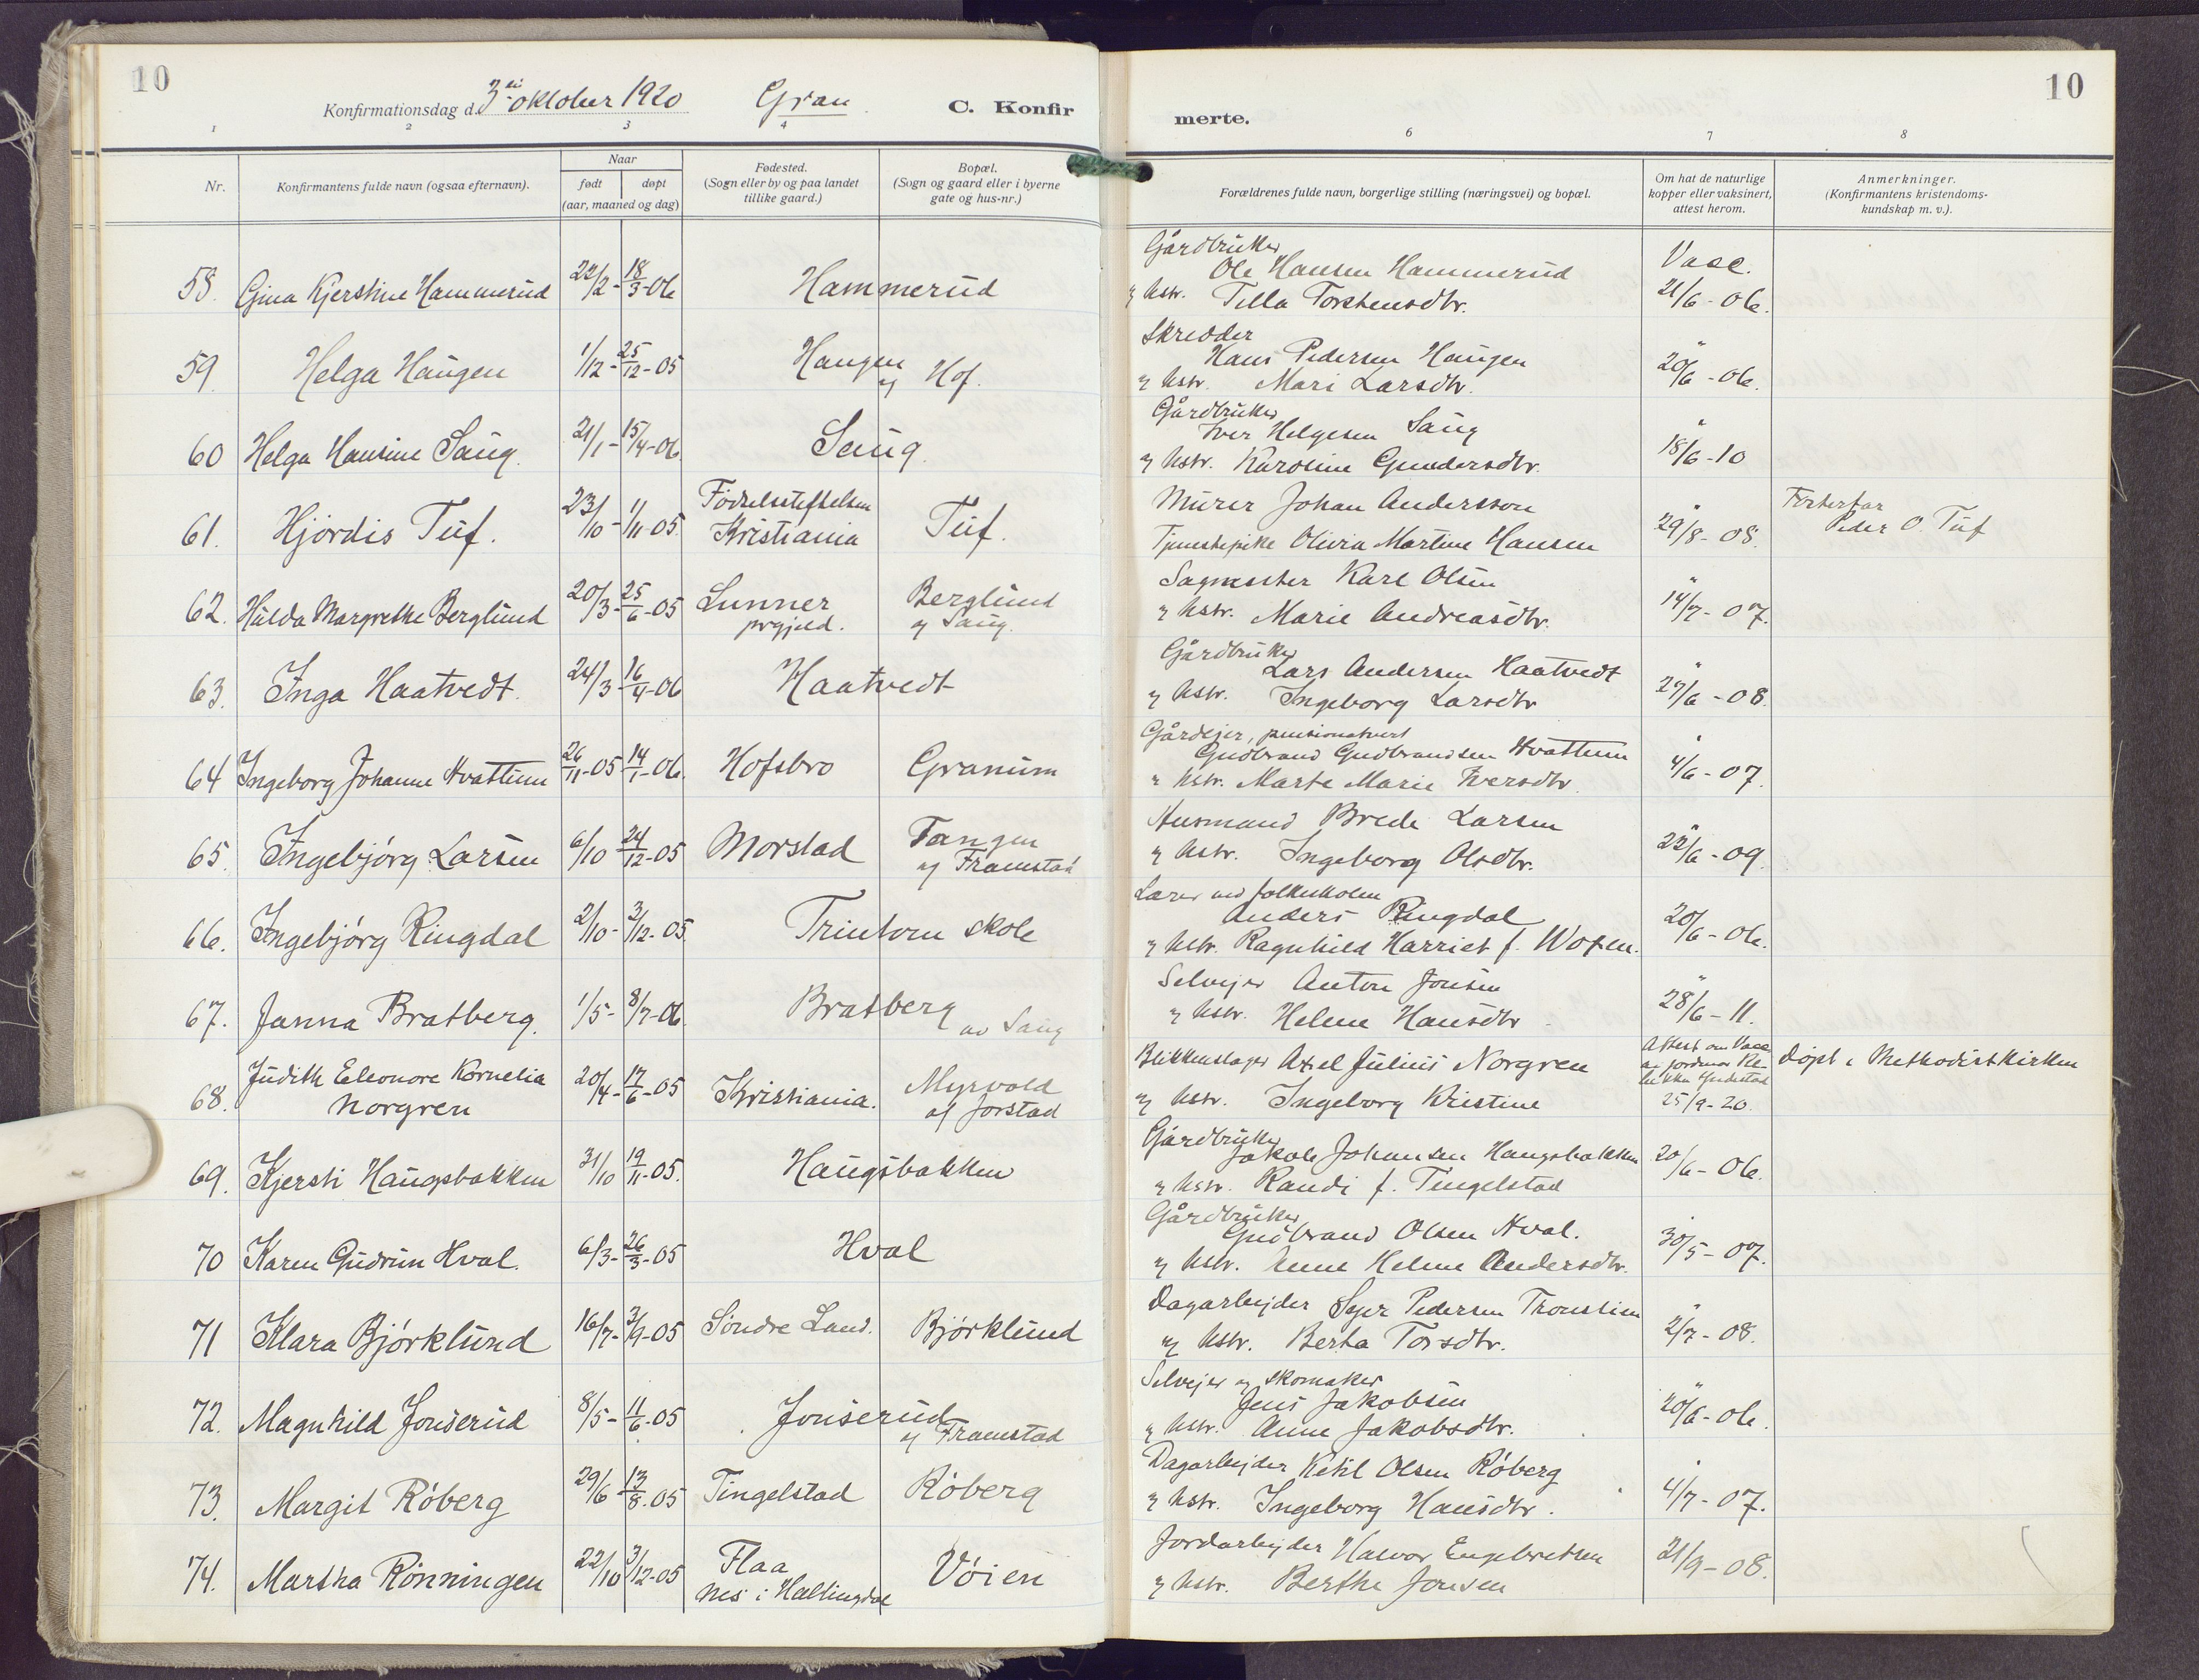 10
Konfirmationsdag d. 3di oktober 1920 Gran C. Konfir
merte.
10
1 2 3 4 6 7 8
Nr.
Konfirmantens fulde navn (ogsaa efternavn).
Naar
født døpt
(aar, maaned og dag)
Fødested.
(Sogn eller by og paa landet
tillike gaard.)
Bopæl.
(Sogn og gaard eller i byerne
gate og hus-nr.)
Forældrenes fulde navn, borgerlige stilling (næringsvei) og bopæl.
Om hat de naturlige
kopper eller vaksinert,
attest herom.
Anmerkninger.
(Konfirmantens kristendoms-
kundskap m. v.).
58. Gina Kjerstine Hammerud 22/2 - 18/3-06 Hammerud
Gårdbruker
Ole Hansen Hammerud
og hstr. Tilla Torstensdtr.
Vacc.
21/6 - 06.
59. Helga Haugen 1/12 - 25/12-05 Haugen
af Hof.
Skredder
Hans Pedersen Haugen
og hstr. Mari Larsdtr.
" 20/6 - 06.
60 Helga Hansine Saug. 21/1 - 15/4-06. Saug.
Gårdbruker
Iver Helgesen Saug
og hstr. Karoline Gundersdtr.
" 18/6 - 10
61. Hjördis Tuf. 23/10 - 1/11-05. Födselsstiftelsen
Kristiania Tuf.
Murer Johan Andersson
Tjenestepike Olivia Martine Hansen
" 29/8 - 08.
Fosterfar
Peder O. Tuf
62. Hulda Margrethe Berglund 20/3 - 25/6-05 Lunner
prgjeld. Berglund
af Saug.
Sagmester Karl Olsen
og hstr. Marie Andreasdtr.
" 14/7 - 07.
63. Inga Haatvedt. 24/3 - 16/4-06 Haatvedt
Gårdbruker
Lars Andersen Haatvedt
og hstr. Ingeborg Larsdtr
" 27/6 - 08.
64 Ingeborg Johanne Hvattum 26/11-05 14/1-06. Hofsbro Granum
Gårdejer, pensionatvert
Gudbrand Gudbrandsen Hvattum
og hstr. Marte Marie Iversdtr.
" 4/6 - 07.
65. Ingebjörg Larsen 6/10 24/12-05 Morstad Tangen
af Framstad
Husmand Brede Larsen
og hstr. Ingeborg Olsdtr.
" 22/6 - 09.
66. Ingebjörg Ringdal 2/10 - 3/12-05. Trintom skole
Lærer ved folkeskolen
Anders Ringdal
og hstr. Ragnhild Harriet f. Woxen.
20/6 - 06.
67. Janna Bratberg. 1/5 - 8/7-06. Bratberg
av Saug
Selvejer Anton Jonsen
og hstr. Helene Hansdtr.
" 28/6 - 11.
68. Judith Eleonore Kornelia
Norgren 20/4 - 17/6-05 Kristiania. Myrvold
af Jorstad
Blikkenslager Axel Julius Norgren
og hstr. Ingeborg Kristine
Attest om Vacc
av jordmor Re-
bekka
25/9-20.
döpt i Methodistkirken
69. Kjersti Haugsbakken 31/10 19/11-05. Haugsbakken
Gårdbruker
Jakob Johansen Haugsbakken
og hstr. Randi f. Tingelstad
20/6 - 06.
70 Karen Gudrun Hval. 6/3 - 26/3-05 Hval
Gårdbruker
Gudbrand Olsen Hval.
og hstr. Anne Helene Andersdtr.
" 30/5 - 07.
71 Klara Björklund 16/7 - 3/9-05 Söndre Land. Björklund
Dagarbejder Sejer Pedersen
og hstr. Berta Torsdtr.
" 2/7 - 08.
72. Magnhild Jonserud 8/5 - 11/6-05 Jonserud
af Framstad
Selvejer og skomaker
Jens Jakobsen
og hstr. Anne Jakobsdtr.
" 20/6 - 06.
73. Margit Röberg 29/6 13/8-05 Tingelstad Röberg
Dagarbejder Ketil Olsen Röberg
og hstr. Ingeborg Hansdtr.
" 4/7 - 07.
74. Martha Rönningen 22/10 3/12-05 Flaa
Nes i Hallingdal Vöien
Jordarbejder Halvor Engebretsen
og hstr. Berthe Jonsen
21/9 - 08.